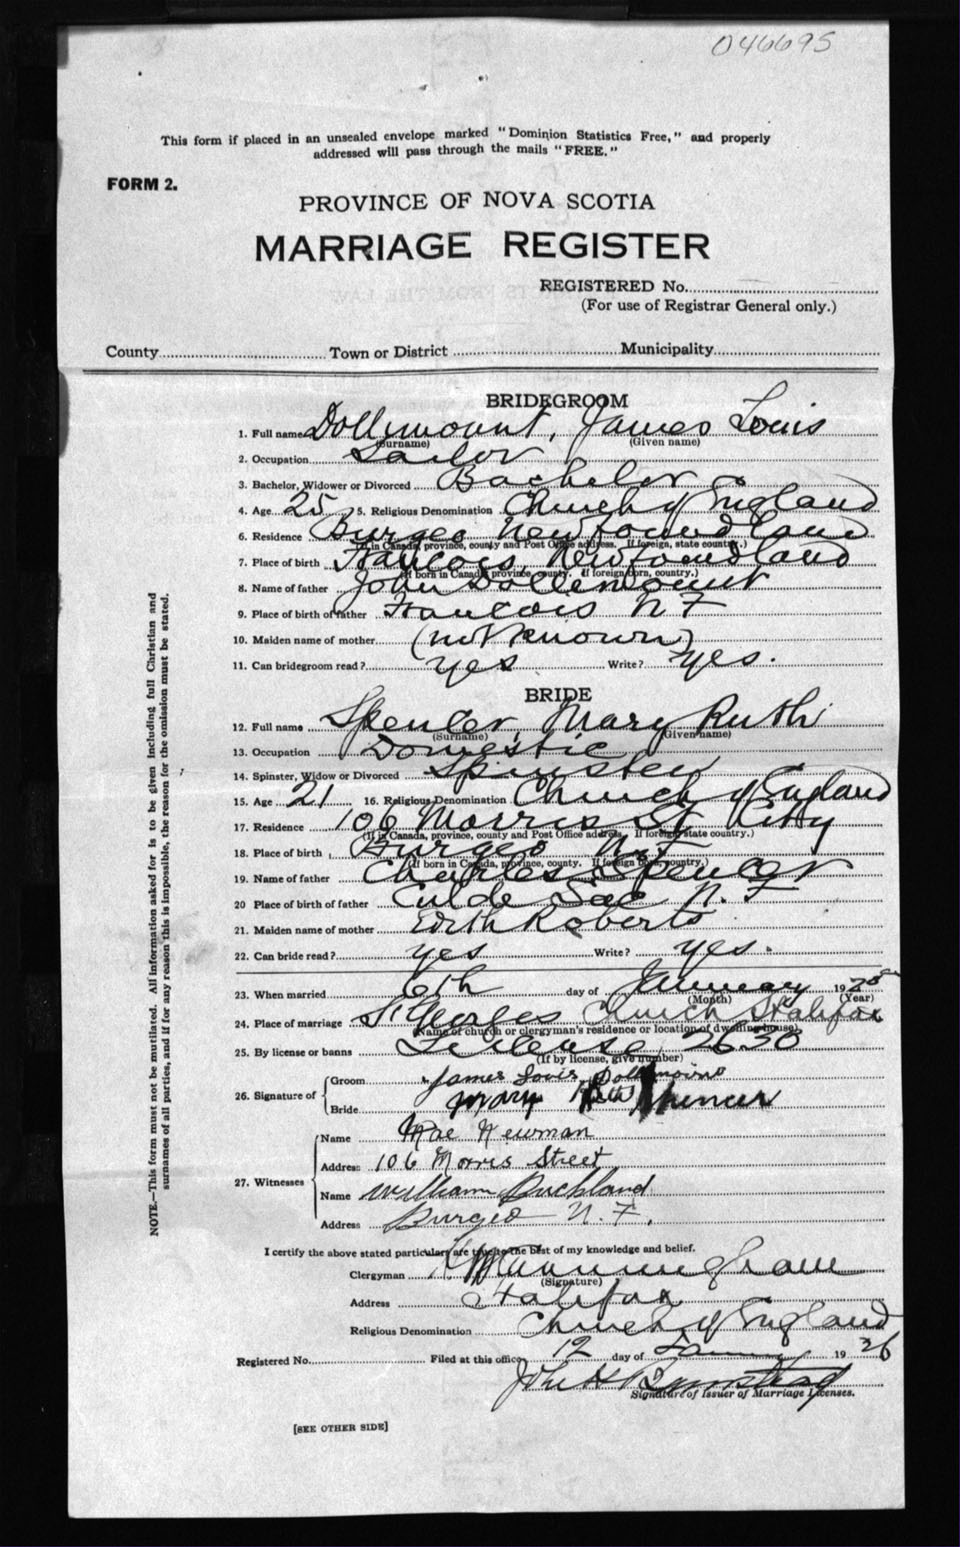 046695
This form if placed in an unsealed envelope marked "Dominion Statistics Free," and properly
addressed will pass through the mails "FREE."
FORM 2.
PROVINCE OF NOVA SCOTIA
MARRIAGE REGISTER
REGISTERED No.
(For use of Registrar General only.)
County Town or District Municipality
BRIDEGROOM
1. Full name Dollymount, James Louis
(Surname) (Given name)
2. Occupation Sailor
3. Bachelor, Widower or Divorced Bachelor
4. Age 25 5. Religious Denomination Church of England
6. Residence Burgeo Newfoundland
(If in Canada, province, county and Post Office address. If foreign, state country.)
7. Place of birth Francois, Newfoundland
(If born in Canada, province, county. If foreign born, country.)
8. Name of father John Dollimount
9. Place of birth of father Francois N F
10. Maiden name of mother (not known)
11. Can bridegroom read? yes Write? yes.
BRIDE
12. Full name Spencer, Mary Ruth
(Surname) (Given name)
13. Occupation Domestic
14. Spinster, Widow or Divorced Spinster
15. Age 21 16. Religious Denomination Church of England
17. Residence 106 Morris St City
(If in Canada, province, county and Post Office address. If foreign state country.)
18. Place of birth Burgeo N. F
(If born in Canada, province, county. If foreign born, country.)
19. Name of father Charles Spencer
20 Place of birth of father Cul de Sac N. F
21. Maiden name of mother Edith Roberts
22. Can bride read? yes Write? yes.
23. When married 6th day of January 19
(Month) (Year)
24. Place of marriage St Georges Church Halifax
(Name of church or clergyman's residence or location of dwelling house)
25. By license or banns License, 2630
(If by license, give number)
26. Signature of Groom James Louis
Bride Mary Ruth Spencer
27. Witnesses Name Mae Newman
Address 106 Morris Street
Name William Buckland
Address Burgeo N. F.
I certify the above stated particulars are true to the best of my knowledge and belief.
Clergyman
(Signature)
Address Halifax
Religious Denomination Church of England
Registered No. Filed at this office 12 day of Jan 19 26
John H
Signature of Issuer of Marriage Licenses.
[SEE OTHER SIDE]
NOTE.—This form must not be mutilated. All information asked for is to be given including full Christian and
surnames of all parties, and if for any reason this is impossible, the reason for the omission must be stated.